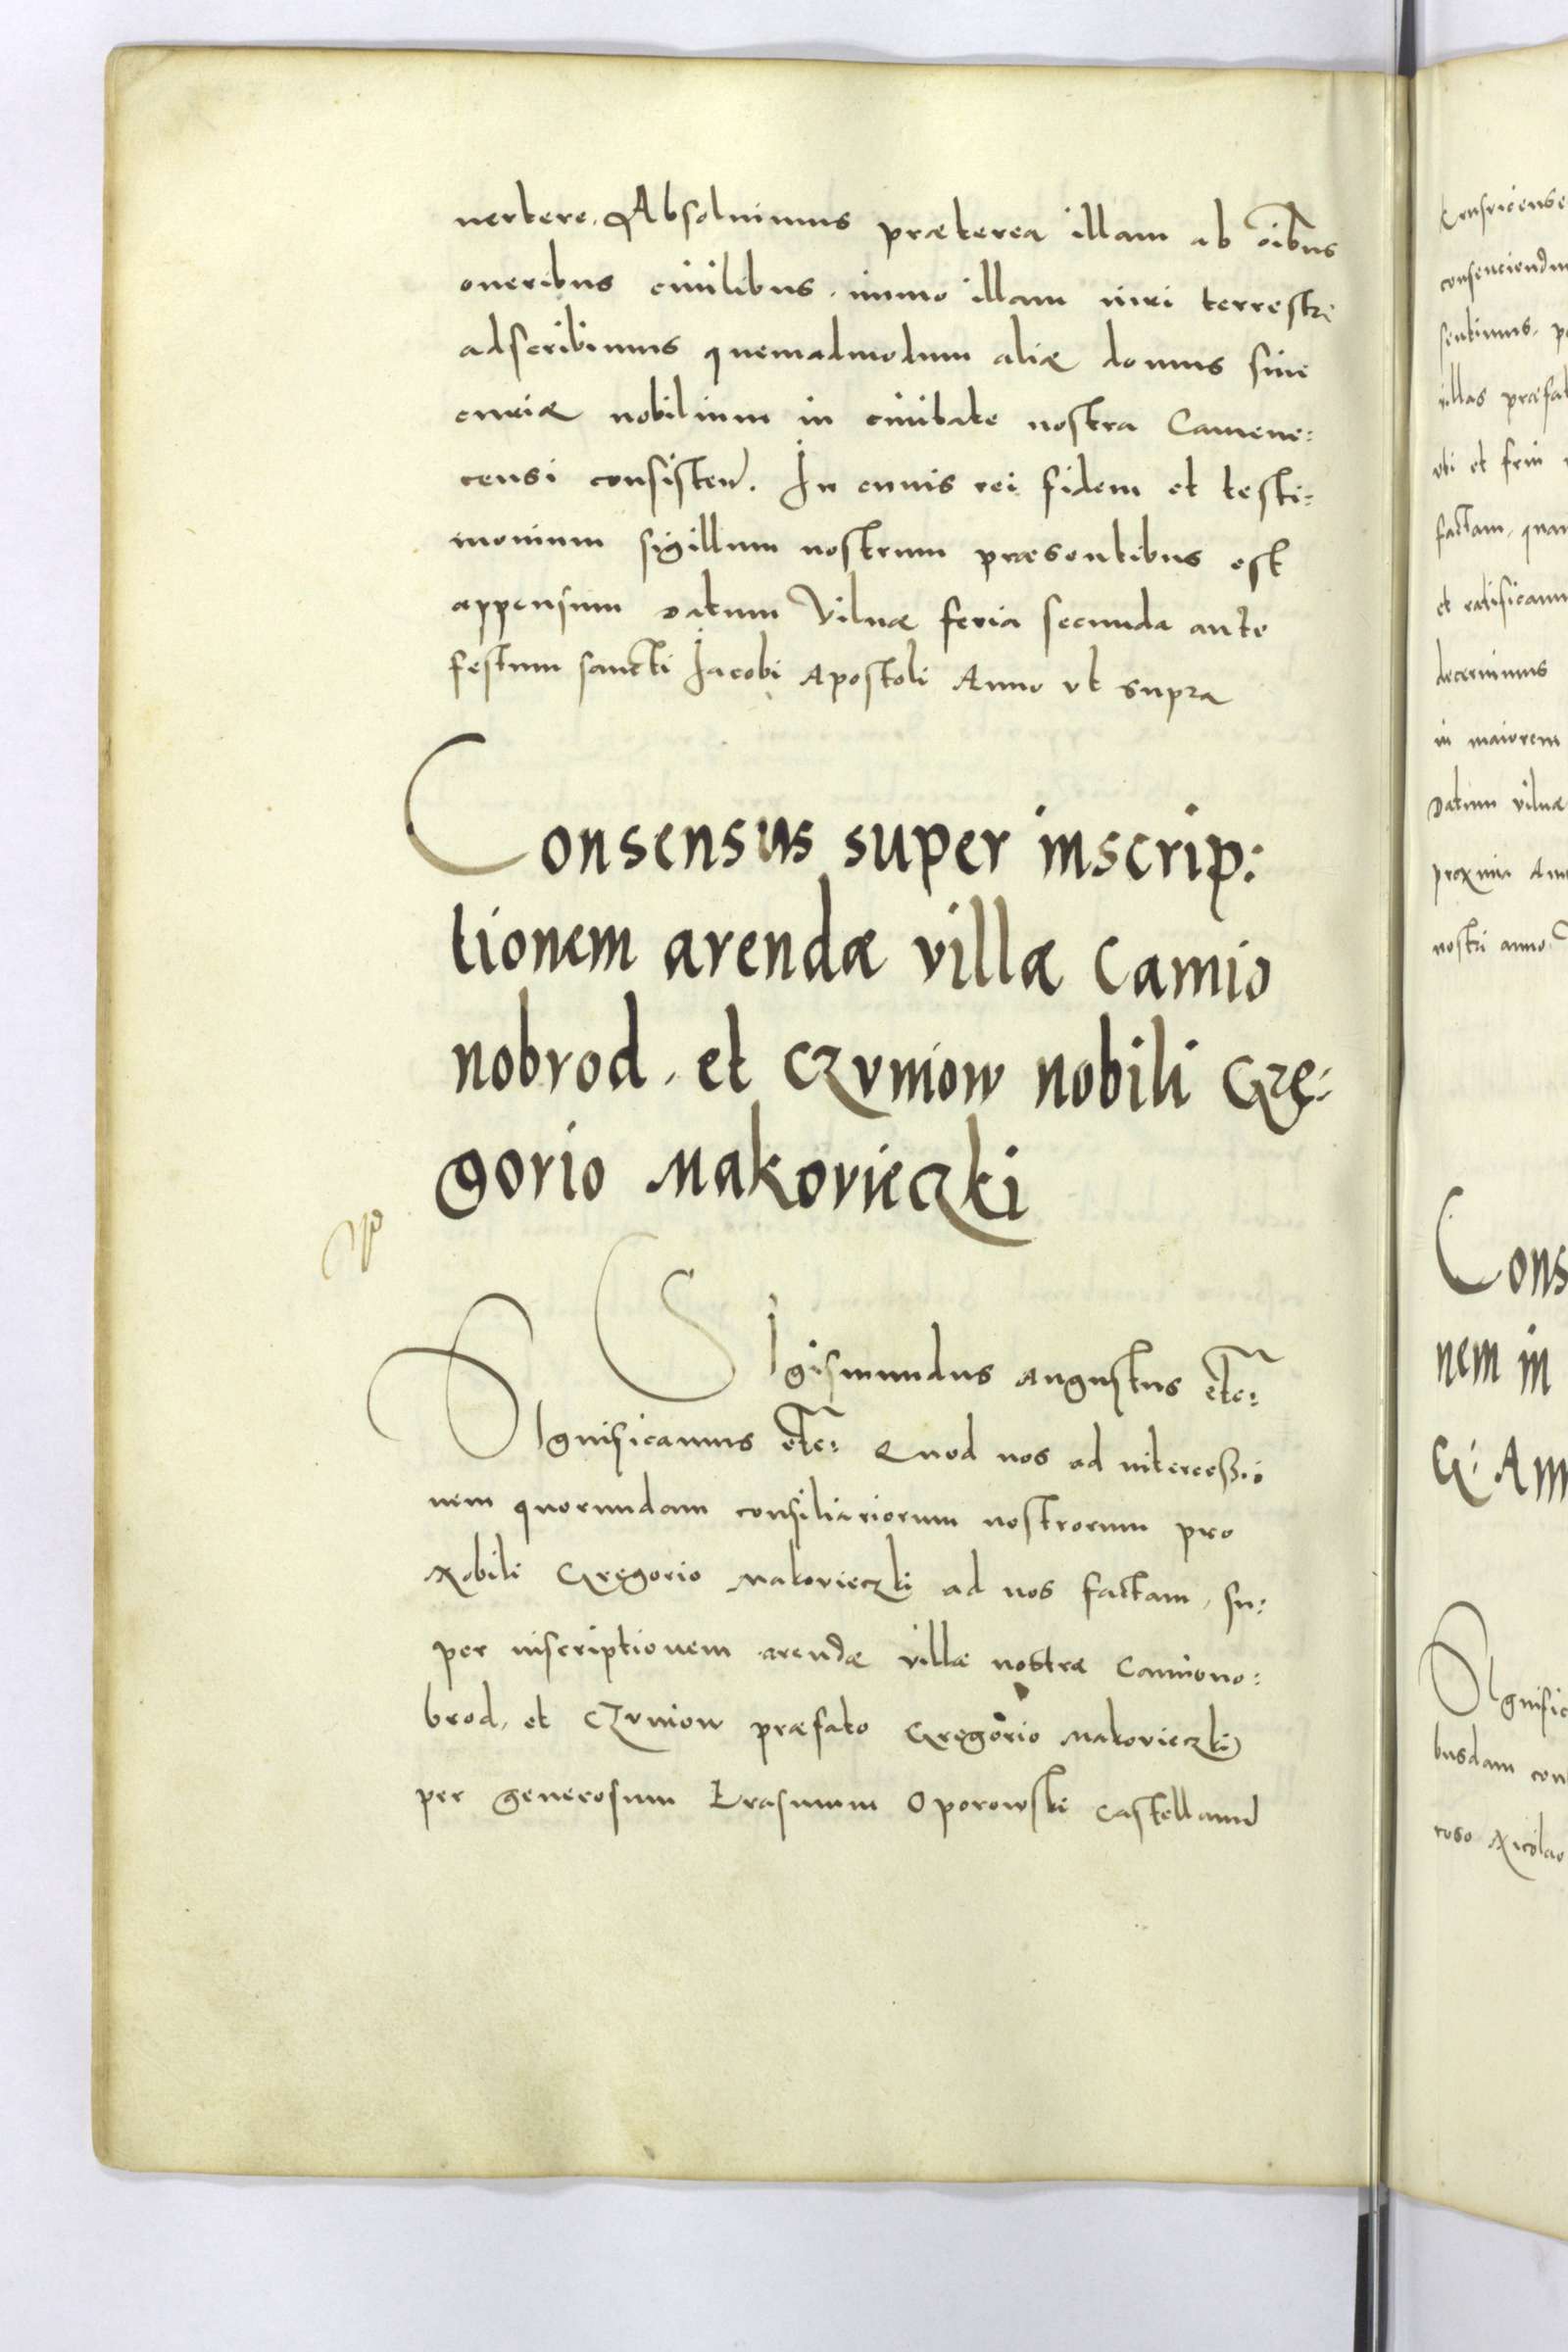 uertere. Absoluimus præterea illam ab oībus
oneribus ciuilibus. immo illam iuri terrestri
adscribimus quemadmodum aliæ domus siue
curiæ nobilium in ciuitate nostra Camene:
censi consisteñ. In cuius rei fidem et testi:
monium sigillum nostrum præsentibus est
appensum Datum Vilnæ feria secunda ante
festum sancti Jacobi Apostoli Anno vt supra
Consensus super inscrip:
tionem arendæ villæ Camio
nobrod. et Czvniow nobili Gre:
gorio Makovieczki
SIgismundus augustus etc:
SIgnificamus etc: Quod nos ad intercessio
nem quorundam consiliariorum nostrorum pro
Nobili Gregorio Makovieczki ad nos factam, su:
per inscriptionem arendæ villæ nostræ Camiono:
brod, et Czvniow præfato Gregorio Makovieczki
per generosum Erasmum Oporowski castellanū
Cons
nem in
consenciendu
villas præfat
factam, quam
et ratificam
decernimus
in maiorem
Datum vilnæ
nostri anno
SIgnific
busdam con
roso Nicolao